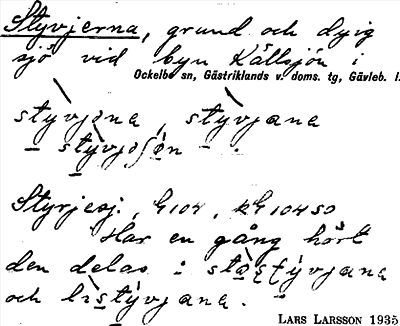 Styvjerna, grund och dyig
sjö vid byn Källsjön i
Ockelbo sn, Gästriklands v. doms. tg, Gävleb. l.
stỳvjǝna, stỳvjana
– stỳvjoʃø̀n – .
Styrjesj. , h 104 , kh 104 so
Har en gång hört
den delas : stǝ̀ʂʈỳvjana
och lìstỳvjana.
LARS LARSSON 1935